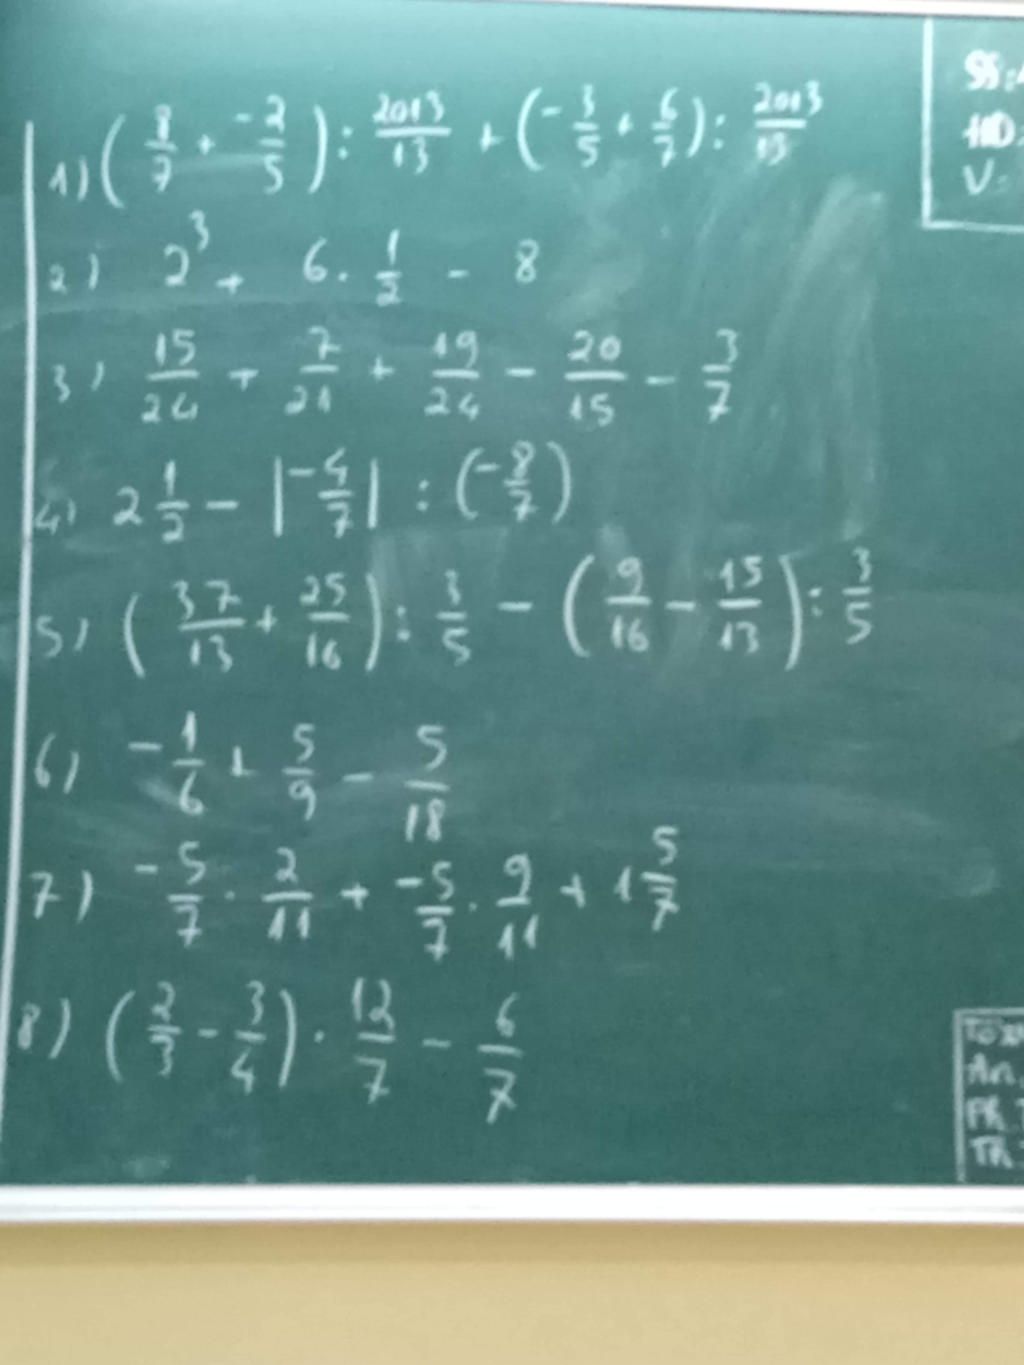 1) (8/7 + -2/5) : 2013/13 + (-3/5 + 6/7) : 2013/13
2) 2³ + 6 . 1/2 - 8
3) 15/24 + 7/21 + 19/24 - 20/15 - 3/7
4) 2 1/2 - |-4/7| : (-8/7)
5) (37/13 + 25/16) : 3/5 - (9/16 - 15/13) : 3/5
6) -1/6 + 5/9 - 5/18
7) -5/7 . 2/11 + -5/7 . 9/11 + 1 5/7
8) (2/3 - 3/4) . 12/7 - 6/7
SS:
HD:
V:
An.
PR.
TR.